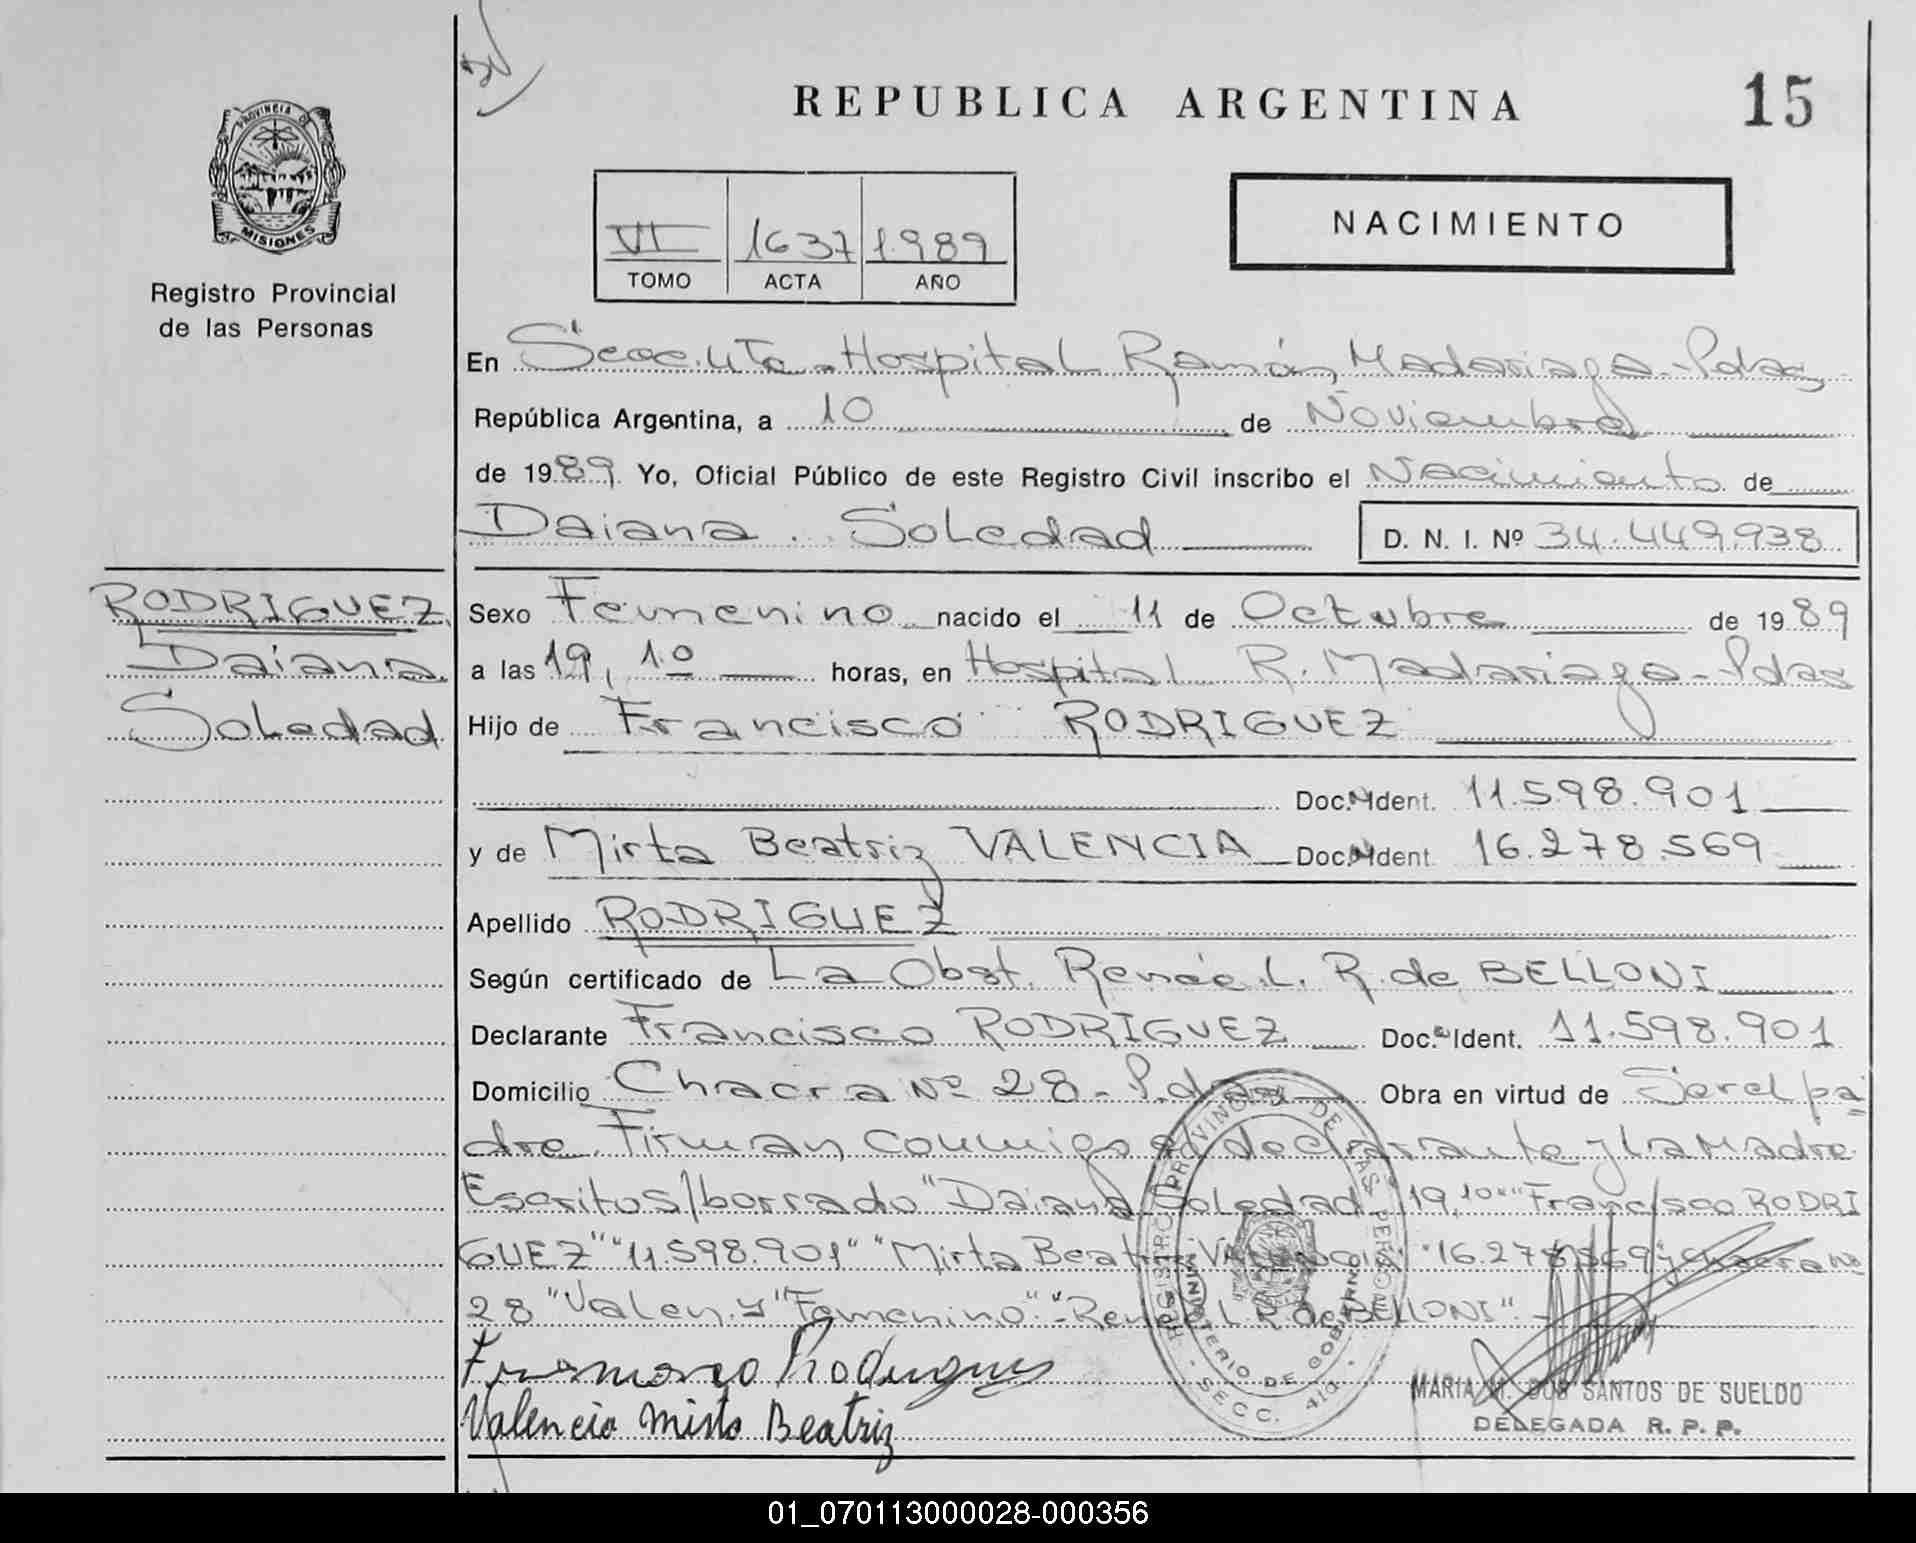 REPUBLICA ARGENTINA
15
PROVINCIA D
MISIONES
Registro Provincial
de las Personas
VI 1637 1.989
TOMO ACTA AÑO
NACIMIENTO
En Secc. 4Ta. Hospital Ramón Madariaga - Pdas
República Argentina, a 10 de Noviembre
de 1989. Yo, Oficial Público de este Registro Civil inscribo el Nacimiento de
Daiana Soledad D. N. I. Nº 34.449.938
RODRIGUEZ
Daiana
Soledad
Sexo Femenino nacido el 11 de Octubre de 1989
a las 19,10 horas, en Hospital R. Madariaga - Pdas
Hijo de Francisco RODRIGUEZ
Doc. Ident. 11.598.901
y de Mirta Beatriz VALENCIA Doc. Ident. 16.278.569
Apellido RODRIGUEZ
Según certificado de La Obst. Renée L. R. de BELLONI
Declarante Francisco RODRIGUEZ Doc. Ident. 11.598.901
Domicilio Chacra Nº 28 - Pdas Obra en virtud de Ser el pa
dre. Firman conmigo el declarante y la Madre
Escritos/borrado "Daiana Soledad" "19,10" "Francisco RODRI
GUEZ" "11.598.901" "Mirta Beatriz VALENCIA" "16.278.569" y Chacra Nº
28 "Valen. y "Femenino" "Renée L. R. de BELLONI". -
REGISTRO PROVINCIAL DE LAS PERSONAS
MINISTERIO DE GOBIERNO
SECC. 4ta.
Francisco Rodrigues
Valencia Mirta Beatriz
MARIA M. DOS SANTOS DE SUELDO
DELEGADA R. P. P.
01_070113000028-000356